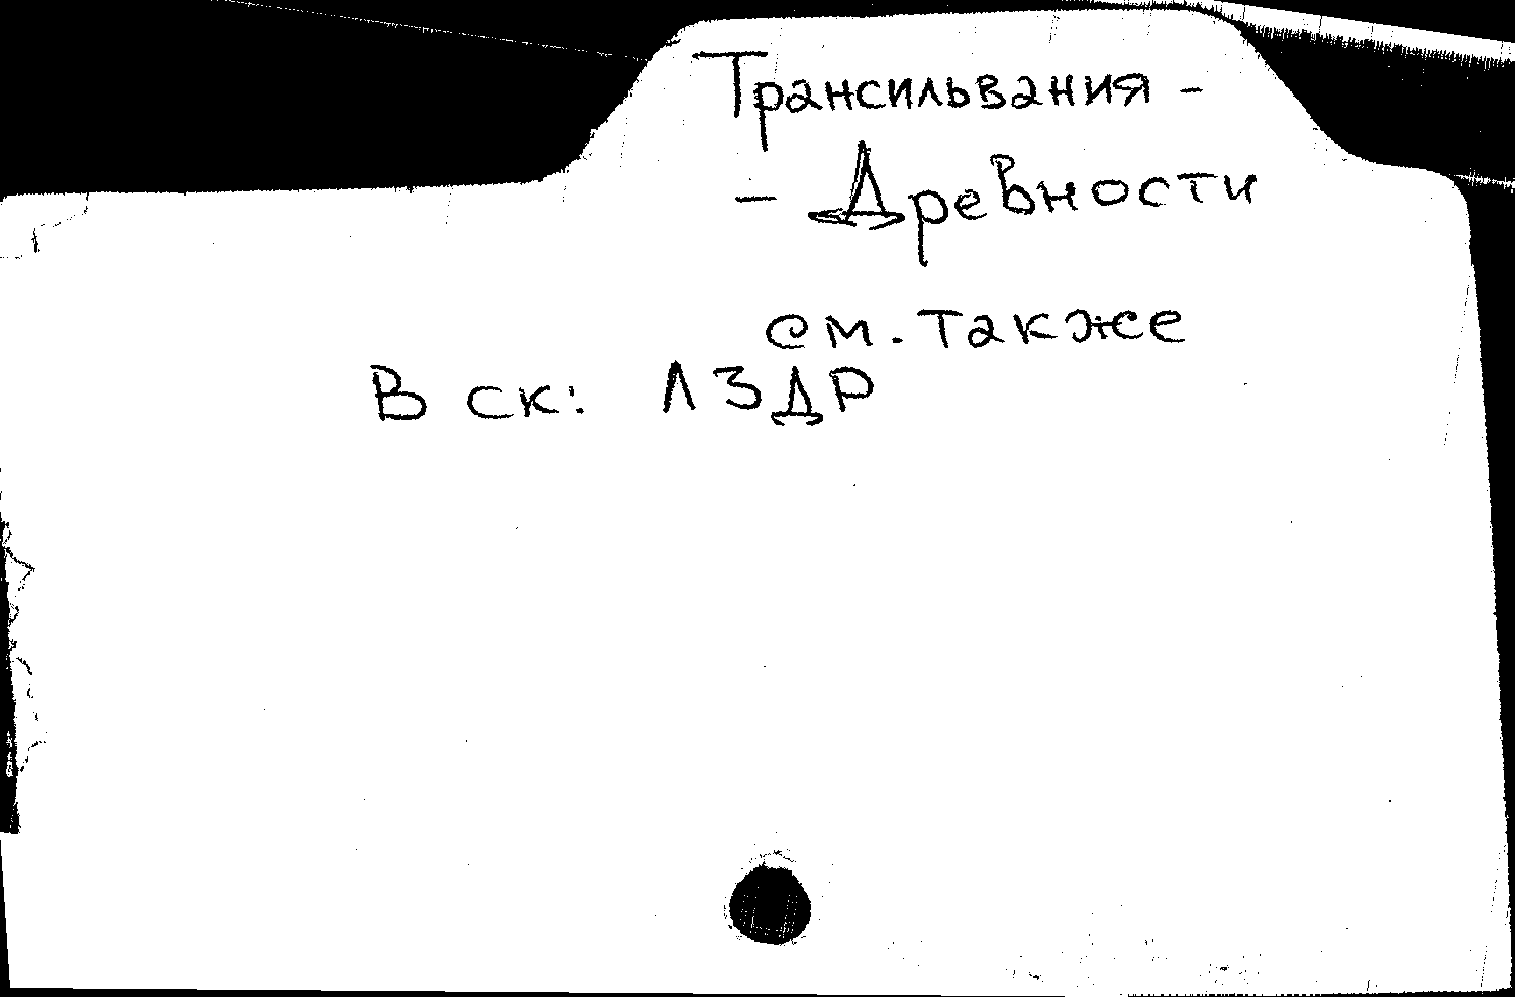 Трансильвания -
- Древности
см. также
В ск: ЛЗДР